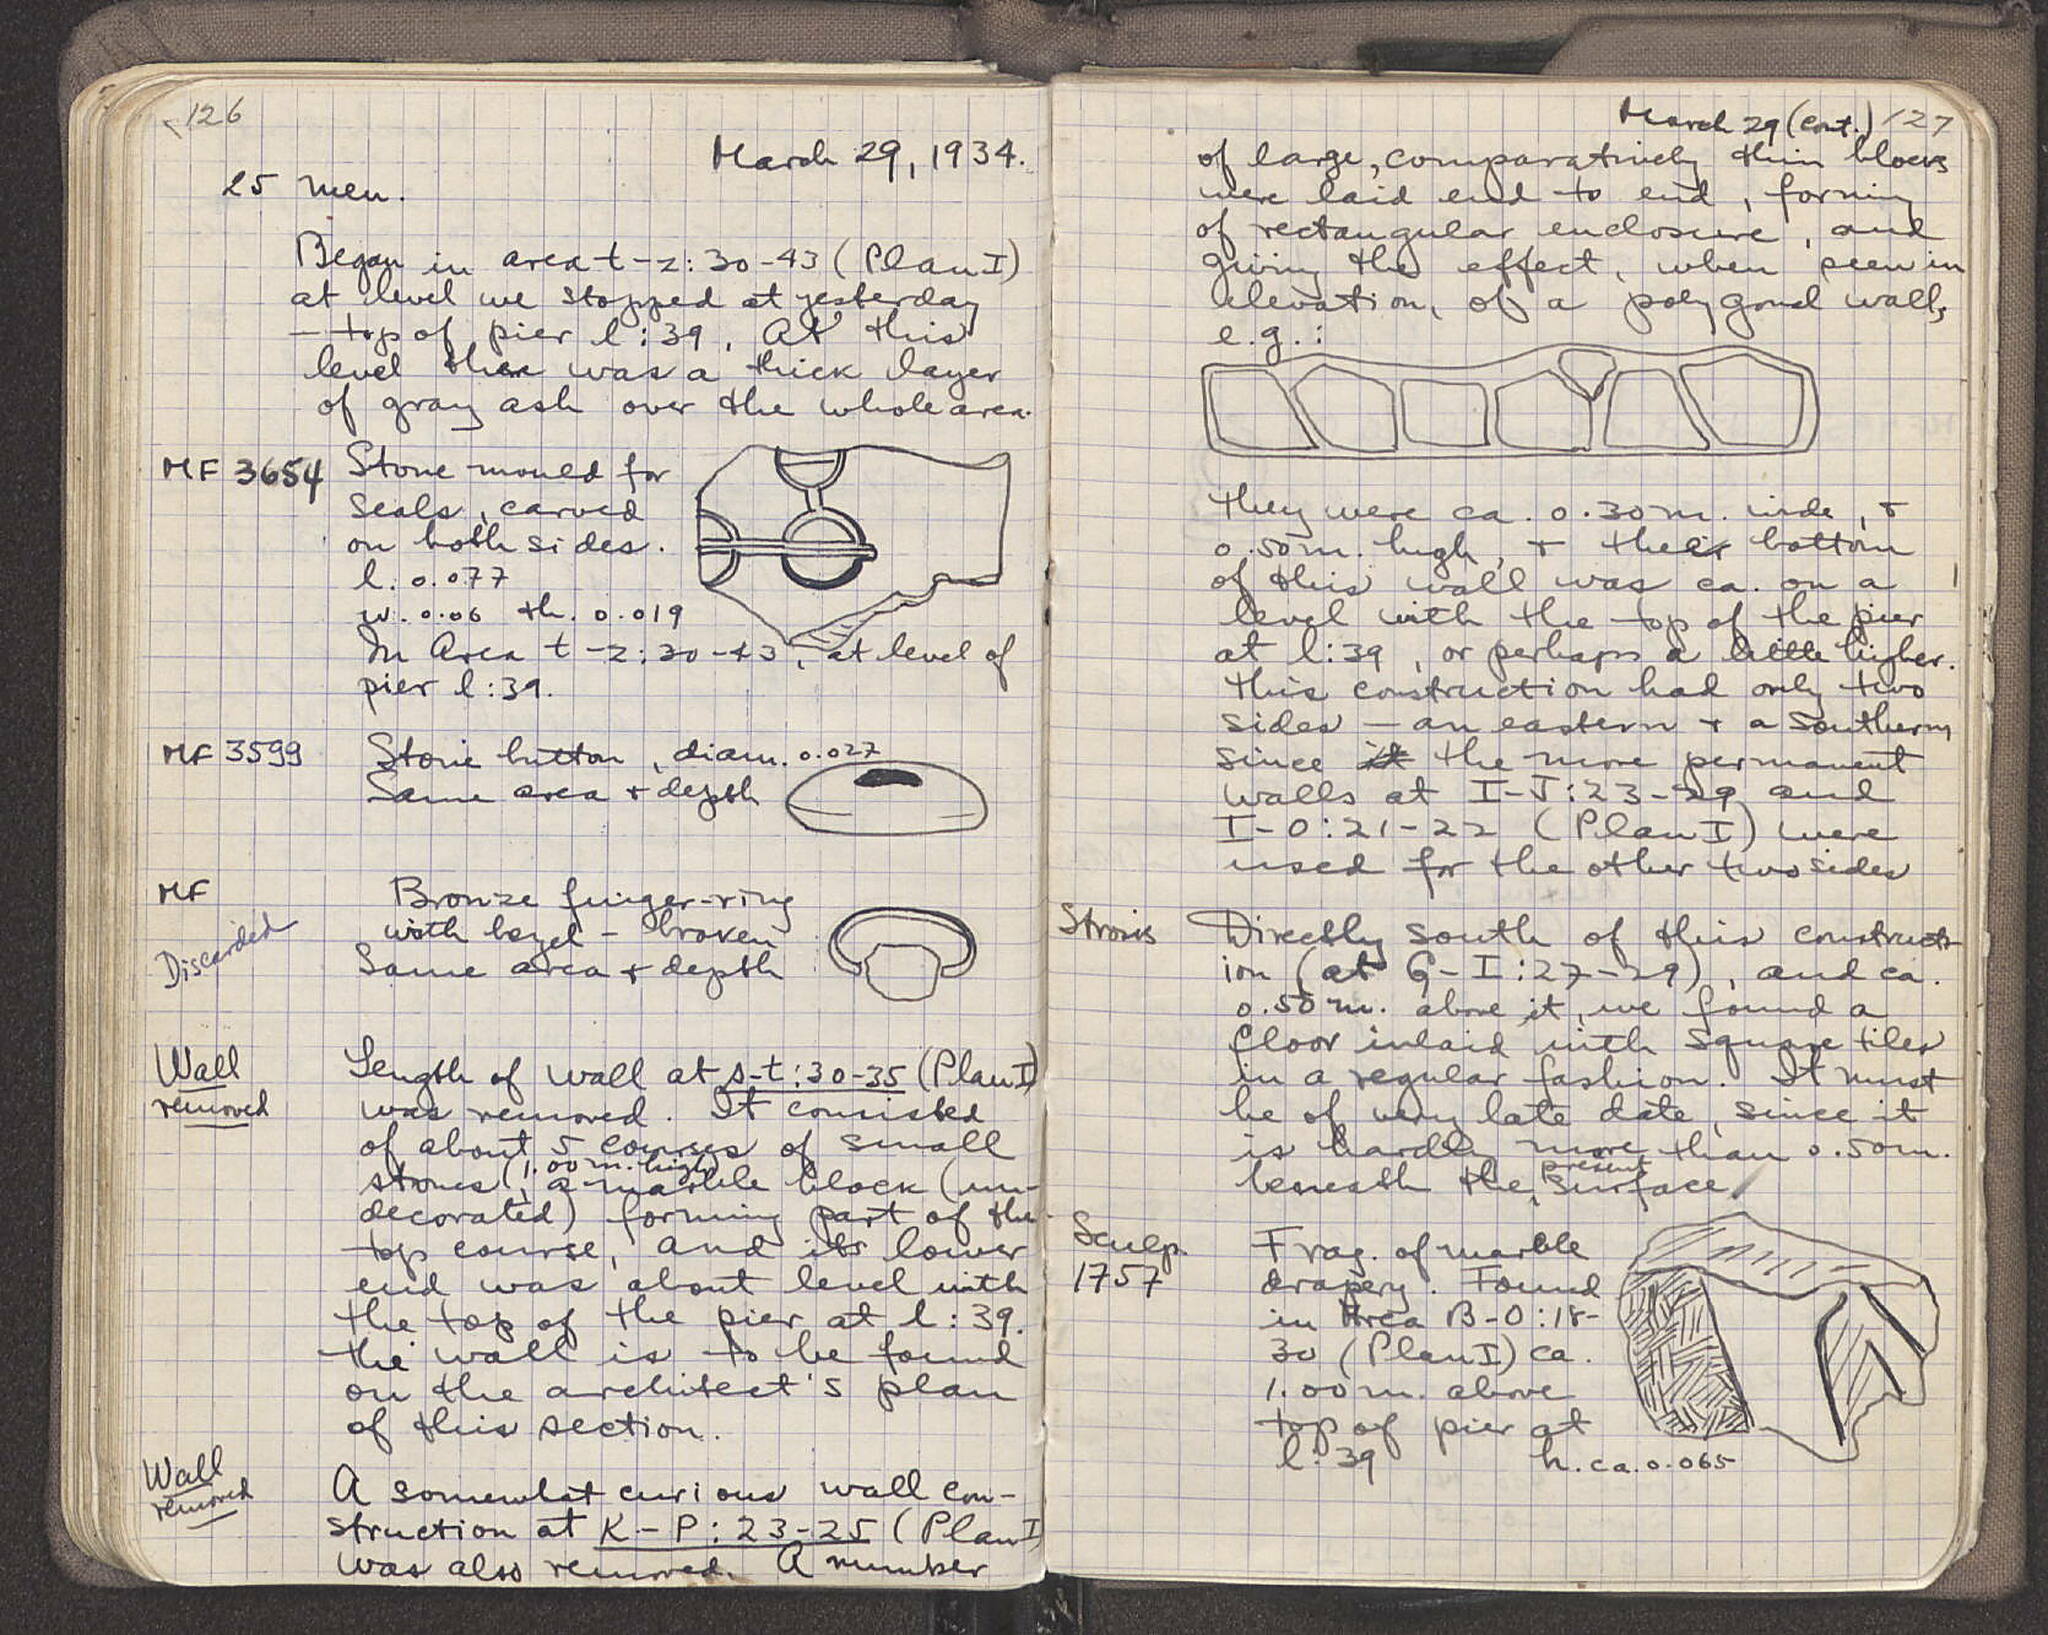 126
March 29, 1934.
25 men.
Began in area t-z:30-43 (Plan I)
at level we stopped at yesterday
- top of pier l:39. At this
level there was a thick layer
of gray ash over the whole area.
MF 3654 Stone mould for
seals, carved
on both sides.
l. 0.077
w. 0.06 th. 0.019
In Area t-z:30-43, at level of
pier l:39.
MF 3599 Stone button, diam. 0.027
Same area + depth
MF Bronze finger-ring
Discarded with bezel - broken
Same area + depth
Wall Length of wall at s-t:30-35 (Plan I)
removed was removed. It consisted
of about 5 courses of small
stones (1.00 m. high), a marble block (un-
decorated) forming part of the
top course, and its lower
end was about level with
the top of the pier at l:39.
the wall is to be found
on the architect's plan
of this section.
Wall A somewhat curious wall con-
removed struction at K-P:23-25 (Plan I
was also removed. A number
March 29 (cont.) 127
of large, comparatively thin blocks
were laid end to end, forming
of rectangular enclosure, and
giving the effect, when seen in
elevation, of a polygonal wall,
e.g.:
they were ca. 0.30 m. wide, +
0.50 m. high, + their bottom
of this wall was ca. on a
level with the top of the pier
at l:39, or perhaps a little higher.
this construction had only two
sides - an eastern + a southern
since it the more permanent
walls at I-J:23-29 and
I-O:21-22 (Plan I) were
used for the other two sides
Strosis Directly south of this construct-
ion (at G-I:27-29), and ca.
0.50 m. above it, we found a
floor inlaid with square tiles
in a regular fashion. It must
be of very late date, since it
is hardly more than 0.50 m.
beneath the present surface.
Sculp. Frag. of marble
1757 drapery. Found
in Area B-O:18-
30 (Plan I) ca.
1.00 m. above
top of pier at
l:39 h. ca. 0.065